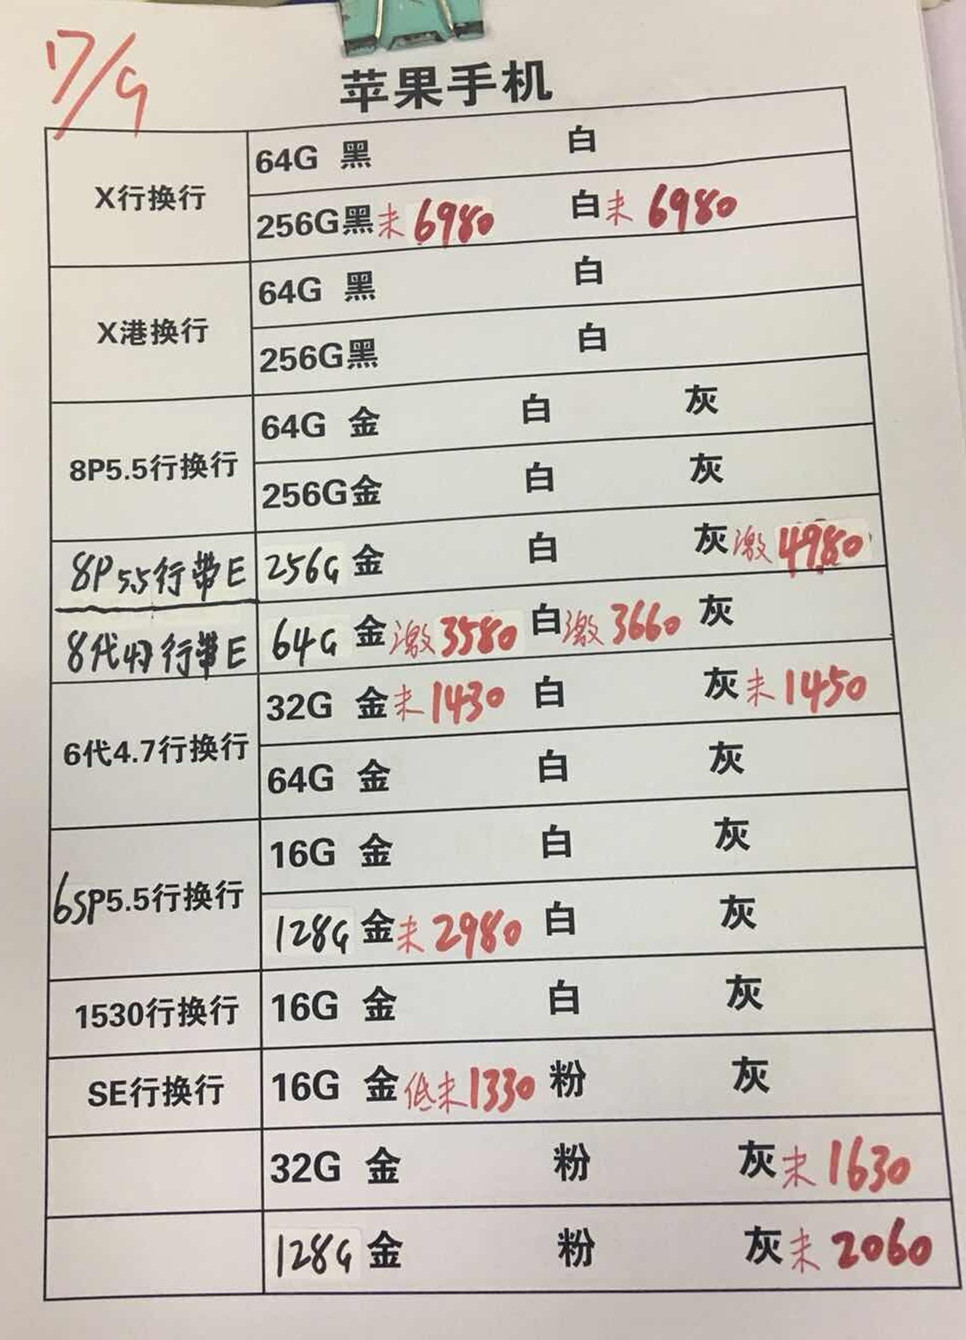 17/9
苹果手机
X行换行
64G 黑 白
256G黑未6980 白未6980
X港换行
64G 黑 白
256G黑 白
8P5.5行换行
64G 金 白 灰
256G金 白 灰
8P5.5行带E 256G 金 白 灰激4980
8代4.7行带E 64G 金激3580 白激3660 灰
6代4.7行换行
32G 金未1430 白 灰未1450
64G 金 白 灰
6SP5.5行换行
16G 金 白 灰
128G 金未2980 白 灰
1530行换行 16G 金 白 灰
SE行换行 16G 金低未1330 粉 灰
32G 金 粉 灰未1630
128G 金 粉 灰未2060